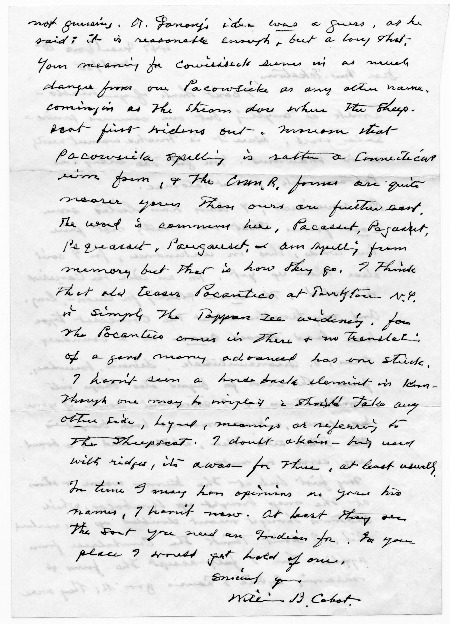 not guessing. A. Lanony's idea was a guess, as he
said; it is reasonable enough, but a long shot.
Your meaning for is as much
danger from our Pacowsicke as any other name.
coming in as the stream does where the Sheep-
scot first widens out. that
Pacowsicke spelling is rather a Connecticut
river form, & the Conn. R. forms are quite
nearer yours than ours are further east.
The word is common here, Pacasset, Pagasset,
Pequasset, Paugasset, am spelling from
memory but that is how they go. I think
that old teaser Pocantico at Tarrytown N.Y.
is simply the Tappan Zee widening, for
the Pocantico comes in there & no translation
of a good many advanced has ever stuck.
I haven't seen a element in
though one may be implied & should take any
other side, beyond, meanings as referring to
the Sheepscot. I doubt used
with ridges, its for those, at least usually.
In time I may have opinions on your his
names, I haven't now. At least they are
the sort you need an Indian for. In your
place I would get hold of one.
Sincerely yrs
William B. Cabot.